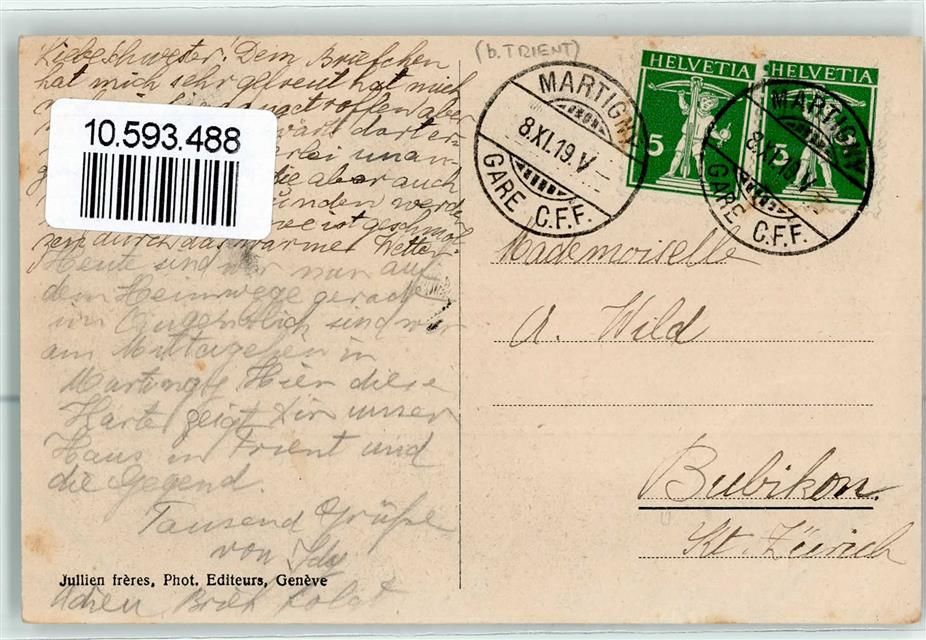 (b. TRIENT)
Liebe Schwester! Dein Briefchen
hat mich sehr gefreut hat mich
angetroffen aber
wäre
10.593.488
die aber auch
werden
ist geschmol-
zen durch das warme Wetter.
Heute sind wir nun auf
dem Heimwege gerade
im Augenblick sind wir
am Mittagessen in
Martingy Hier diese
Karte zeigt Dir unser
Haus in Trient und
die Gegend.
Tausend Grüße
von Ida
Jullien frères, Phot. Editeurs, Genève
Adieu Brief folgt
HELVETIA
5
HELVETIA
5
MARTIGNY
8.XI.19.V
GARE C.F.F.
MARTIGNY
8.XI.19.V
GARE C.F.F.
Mademoiselle
A. Wild
Bubikon.
Kt. Zürich